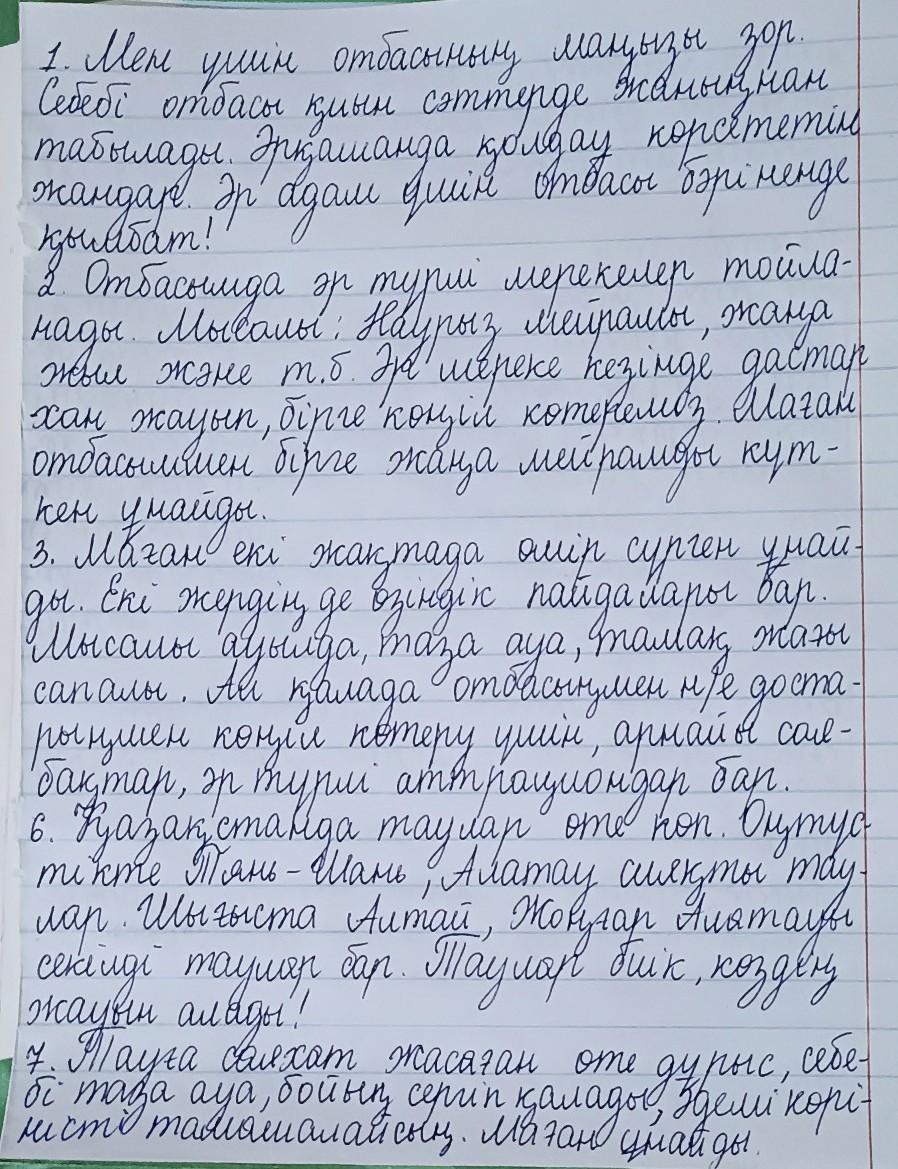 1. Мен үшін отбасының маңызы зор.
Себебі отбасы қиын сәттерде жаныңнан
табылады. Әрқашанда қолдау көрсететін
жандар. Әр адам үшін отбасы бәріненде
қымбат!
2. Отбасымда әр түрлі мерекелер тойла-
нады. Мысалы: Наурыз мейрамы, жаңа
жыл және т.б. Әр мереке кезінде дастар
хан жауып, бірге көңіл көтереміз. Маған
отбасыммен бірге жаңа мейрамды күт-
кен ұнайды.
3. Маған екі жақтада өмір сүрген ұнай-
ды. Екі жердің де өзіндік пайдалары бар.
Мысалы ауылда, таза ауа, тамақ жағы
сапалы. Ал қалада отбасыңмен н/е доста-
рыңмен көңіл көтеру үшін, арнайы сая-
бақтар, әр түрлі аттрациондар бар.
6. Қазақстанда таулар өте көп. Оңтүс
тікте Тянь-Шань, Алатау сияқты тау-
лар. Шығыста Алтай, Жоңғар Алатауы
секілді таулар бар. Таулар биік, көздең
жауын алады!
7. Тауға саяхат жасаған өте дұрыс, себе-
бі таза ауа, бойың сергіп қалады, әдемі көрі-
ністі тамашалайсың. Маған ұнайды.